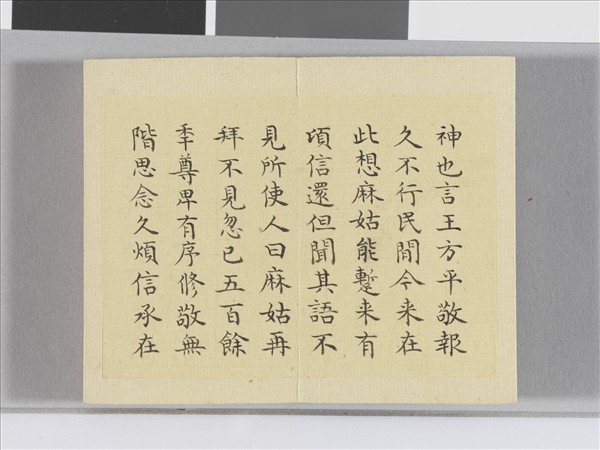 神也言王方平敬報
久不行民間今来在
此想麻姑能蹔来有
頃信還但聞其語不
見所使人曰麻姑再
拜不見忽已五百餘
年尊卑有序修敬無
階思念久煩信承在